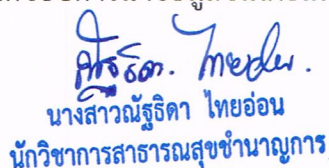 ณัฐธิดา ไทยอ่อน.
นางสาวณัฐธิดา ไทยอ่อน
นักวิชาการสาธารณสุขชำนาญการ